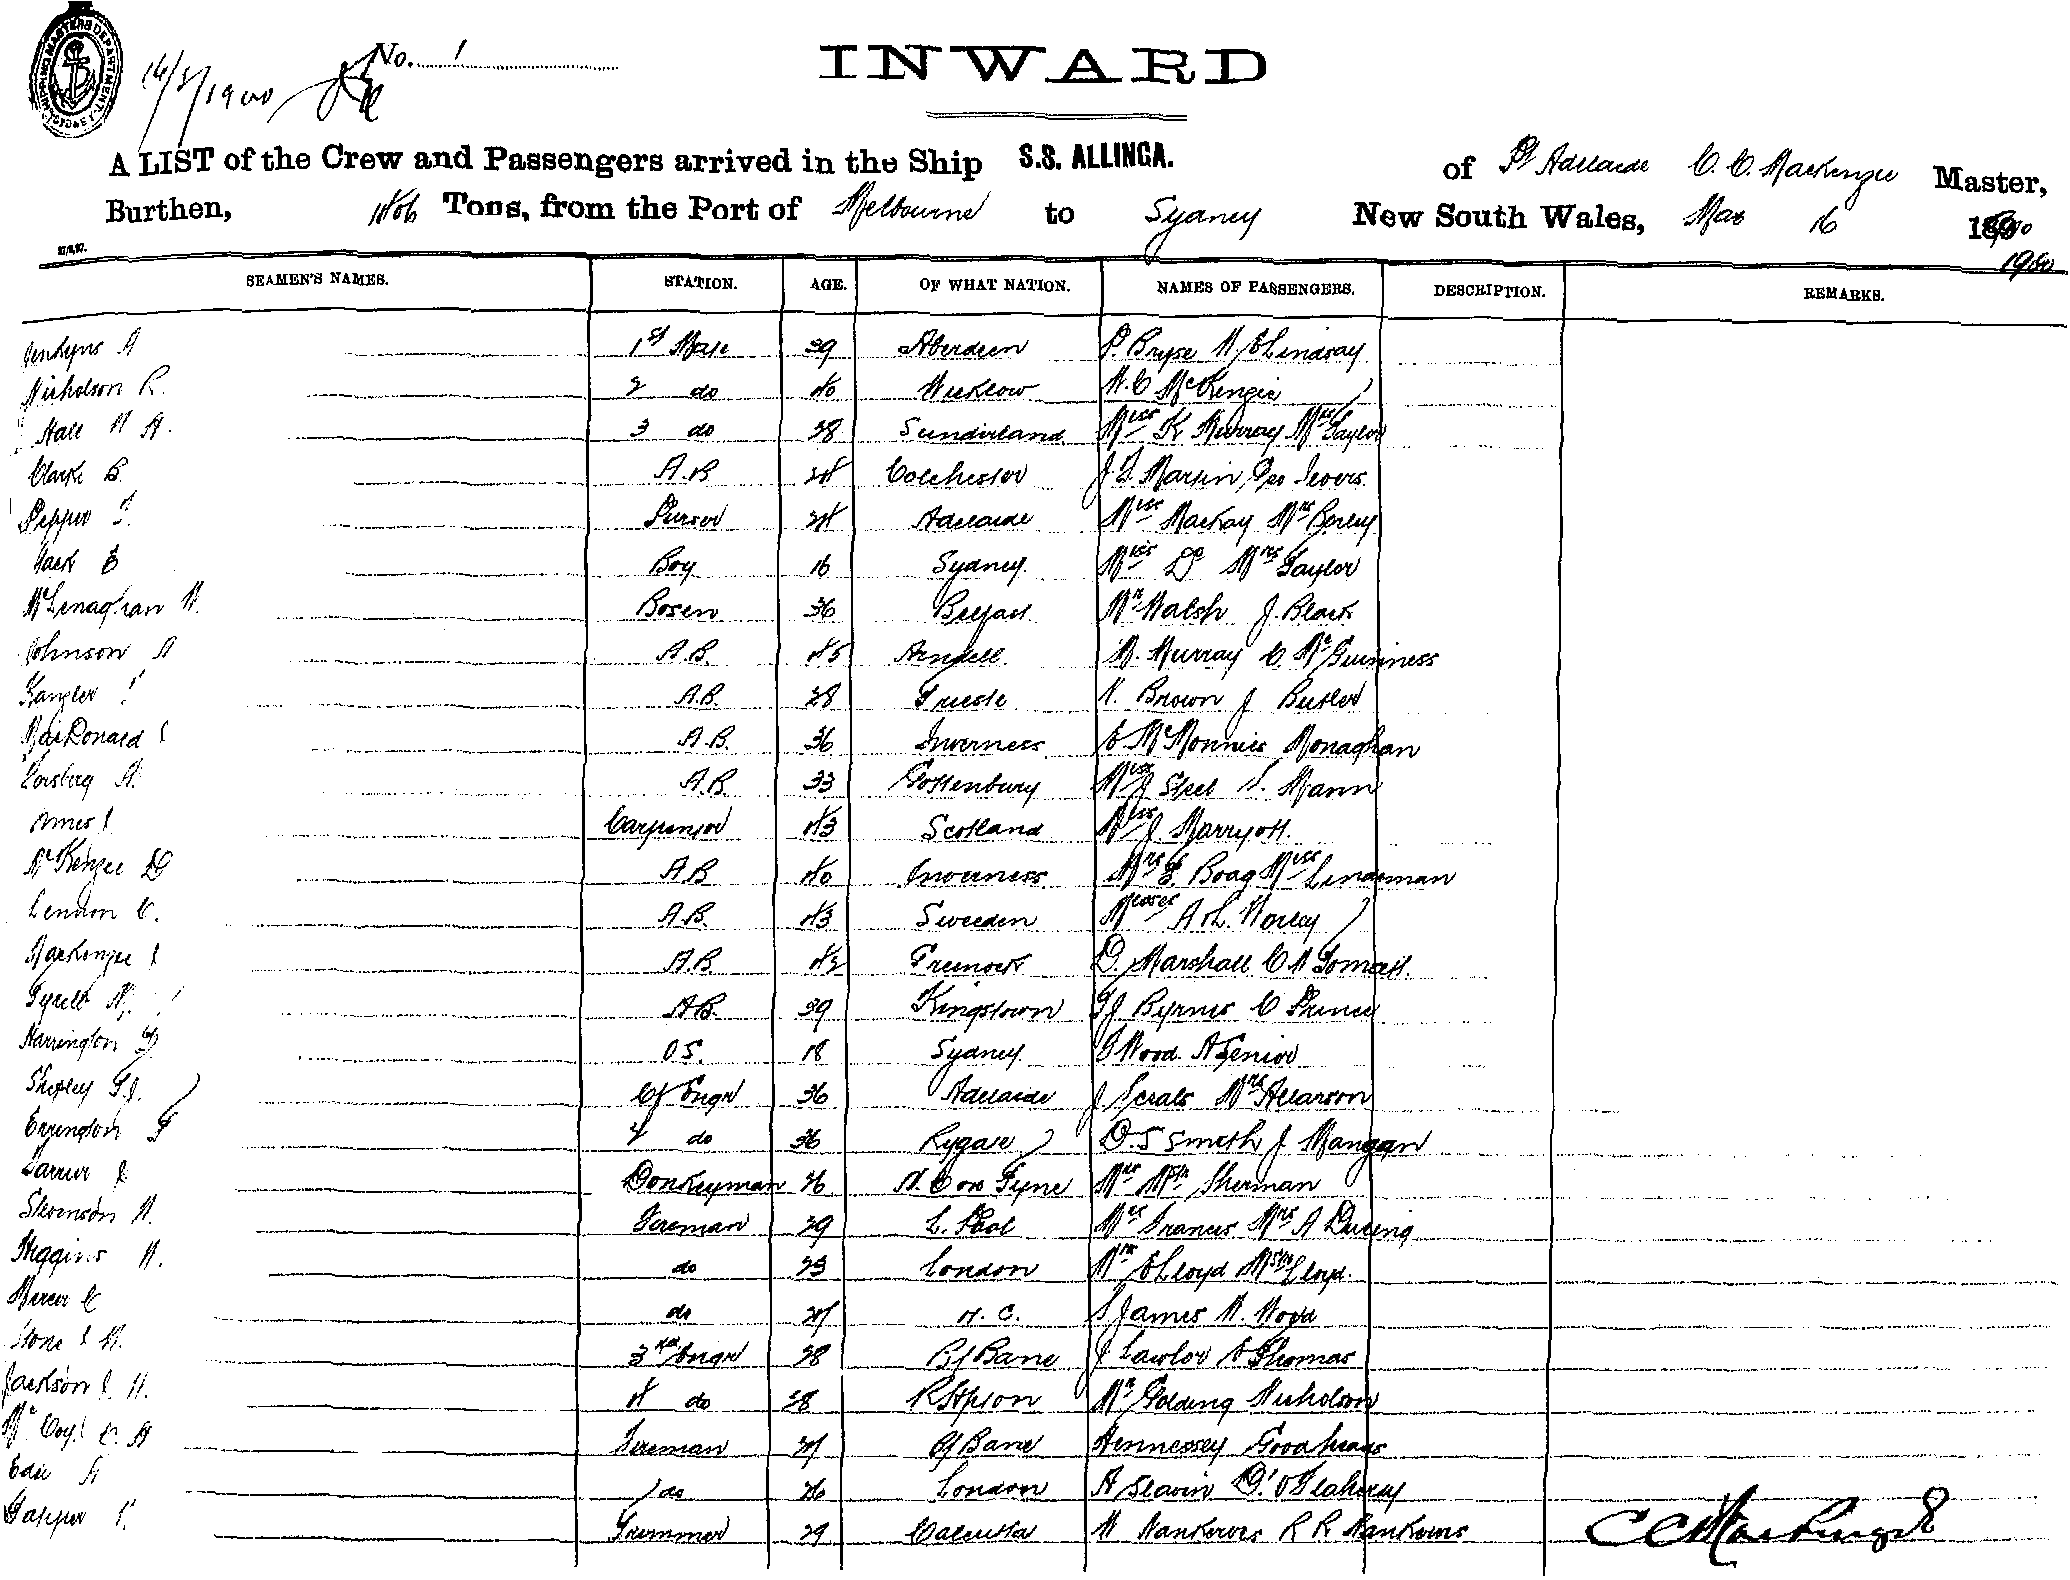 SHIPPING MASTERS DEPARTMENT SYDNEY
16/3/1900 No. 1
INWARD
A LIST of the Crew and Passengers arrived in the Ship S.S. ALLINGA. of Pt Adelaide C. C. Mackenzie Master,
Burthen, Tons, from the Port of Melbourne to Sydney New South Wales, Mar 16 1900
1900
SEAMEN'S NAMES. STATION. AGE. OF WHAT NATION. NAMES OF PASSENGERS. DESCRIPTION. REMARKS.
Jenkyns A 1st Mate 39 Aberdeen P. Bryse Lindsay
Nicholson R. 2 do 40 Wicklow W. C McKenzie
Hall W A. 3 do 28 Sunderland Miss K Murray Mrs Taylor
Clarke B. A.B 24 Colchester J. Martin, Geo
Pepper T. Purser 24 Adelaide Miss Mackay Mrs
Jack E Boy 16 Sydney Miss Do Mrs Taylor
McLenaghan W. Bosen 36 Belfast Mr Walsh J. Black
Johnson A A.B. 45 Arndell M. Murray C McGuinness
Tangler A.B. 28 Trieste W. Brown J Butler
MacDonald J A.B. 36 Inverness Monaghan
Forsberg A. A.B. 33 Gottenburg Miss Steel S. Mann
Innes J Carpenter 43 Scotland Miss J. Marryott.
McKenzie D A.B 40 Inverness Mrs Boag Miss Lindeman
Lennon C. A.B. 43 Sweeden Misses A & L. Worley
Mackenzie J A.B 42 Greenock D. Marshall C W
Tyrell W. A.B. 39 Kingstown Byrnes C Prince
Harrington O.S. 18 Sydney G Wood. A Senior
Shepley T.J. Cf Engr 36 Adelaide J Mrs
Errington F 2 do 36 Rygate D. S Smith J. Mangan
Larner J Donkeyman 26 N. C on Tyne Mrs Mstr Sherman
Stevenson W. Fireman 29 L. Pool Mrs Francis Mrs A
Higgins W. do 23 London Mrs Lloyd Mstr Lloyd.
Mercer C do 24 N. C. S James W. Wood
Stone J W. 3rd Engr 28 B/Bane J Lawlor Thomas
Jackson J. H. 4 do 28 Mr Golding Nicholson
McCoy C. A Fireman 24 B/Bane Hennessey
Edie A do 26 London A Slavin D. O'Flaherty
Tapper Trimmer 29 Calcutta W Nankervis R R Nankervis
C C Mackenzie